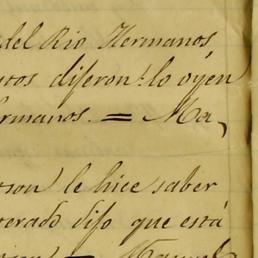 del Rio Hermanos,
tos dijeron: lo oyen
ermanos. = Ma,
tson le hice saber
terado dijo que está
= Manuel